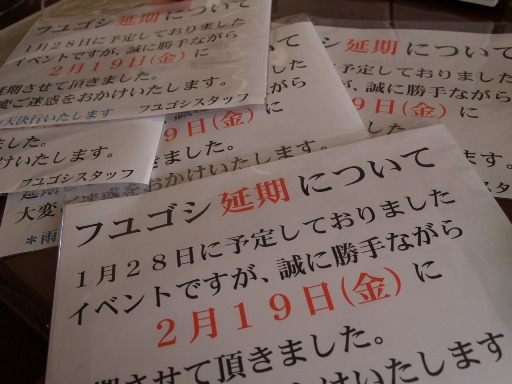 フユゴシ延期について
1月28日に予定しておりました
イベントですが、誠に勝手ながら
2月19日(金)に
期させて頂きました。
変ご迷惑をおかけいたします。
フユゴシスタッフ
大決行いたします
した。
けいたします。
フユゴシスタッフ
9日(金)に
をました。
をおかけいたします。
大変
*雨
延期について
予定しておりました
が、誠に勝手ながら
9日(金)に
ました。
フユゴシ延期について
1月28日に予定しておりました
イベントですが、誠に勝手ながら
2月19日(金)に
期させて頂きました。
けいたします